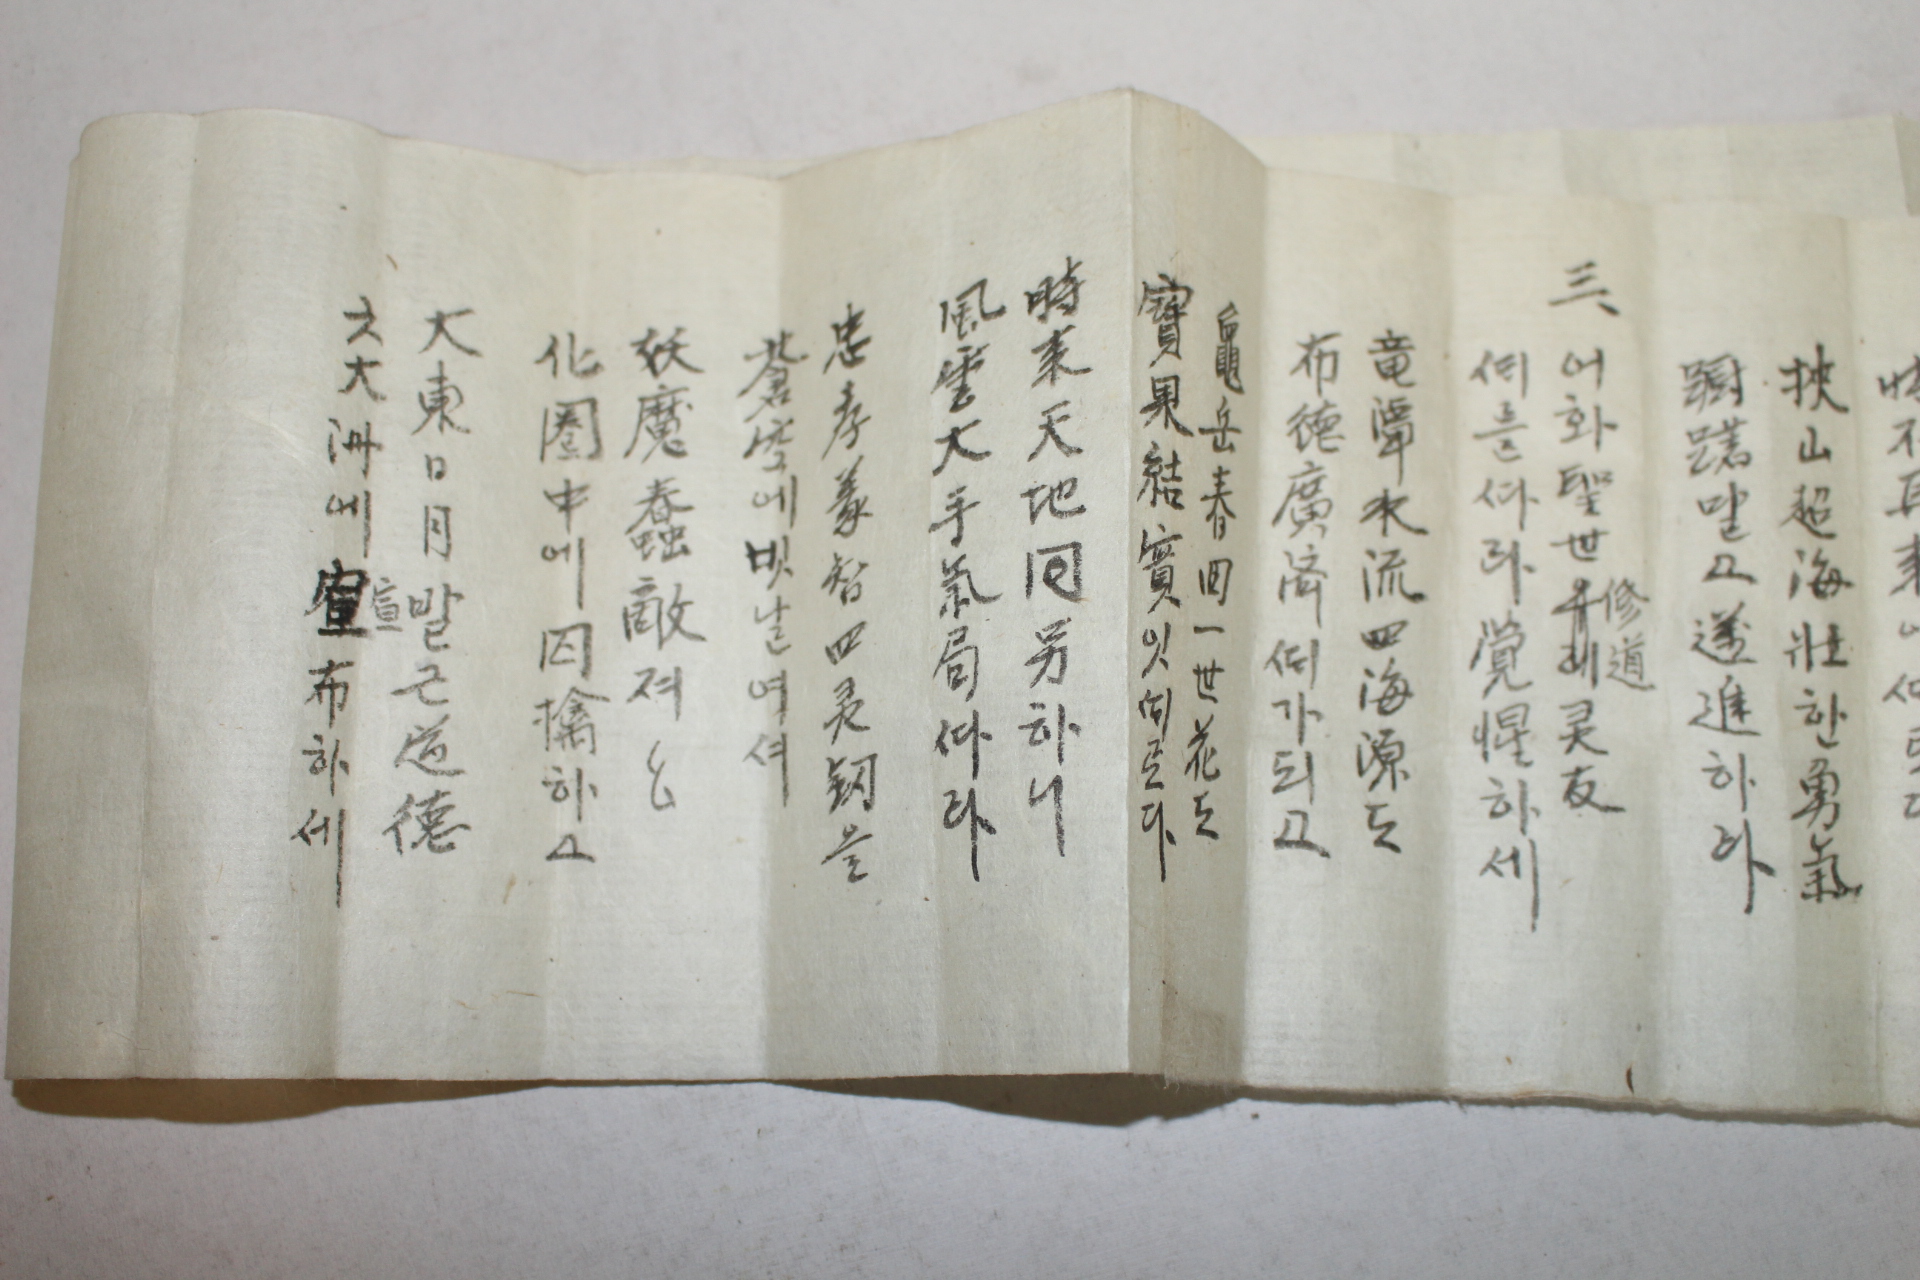 挾山超海壯한勇氣
躕躇말고邁進하라
三、어화聖世修道灵友
씨를따라覺惺하세
竜潭水流四海源도
布德廣濟씨가되고
龜岳春回一世花도
寶果結實잇씨르다
時來天地回另하니
風雲大手氣局따라
忠孝義智四灵釼을
蒼空에빗날여셔
妖魔蠢敵져
化圈中에囚擒하고
大東日月말근道德
六大洲에宣布하세